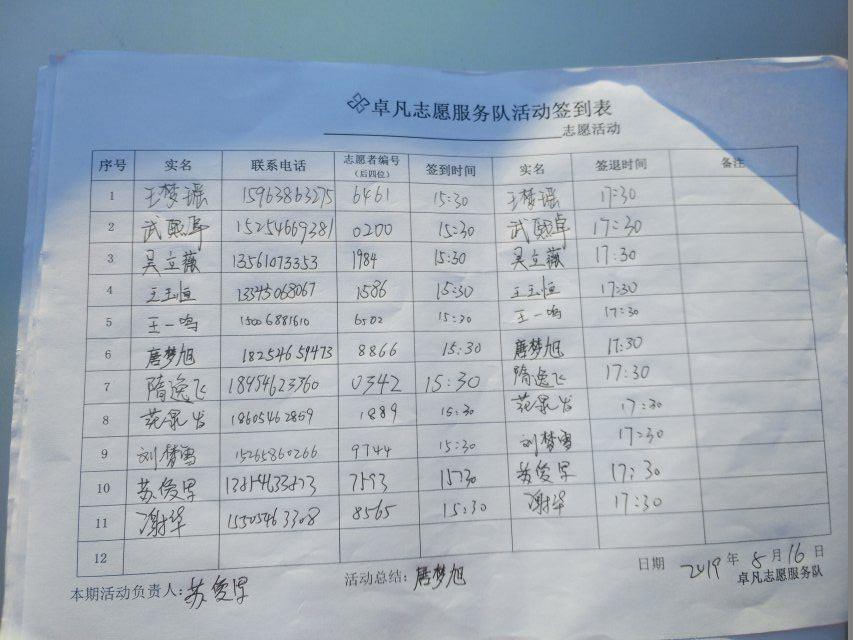 卓凡志愿服务队活动签到表
志愿活动
序号 实名 联系电话 志愿者编号（后四位） 签到时间 实名 签退时间 备注
1 王梦瑶 15963863275 6461 15:30 王梦瑶 17:30
2 武熙阜 15254669381 0200 15:30 武熙阜 17:30
3 吴立薇 13561073353 1984 15:30 吴立薇 17:30
4 王玉恒 13345068067 1586 15:30 王玉恒 17:30
5 王一鸣 15006881610 6502 15:30 王一鸣 17:30
6 唐梦旭 18254659473 8866 15:30 唐梦旭 17:30
7 隋逸飞 18954623760 0342 15:30 隋逸飞 17:30
8 18605462859 1889 15:30 17:30
9 刘梦雪 15265860266 9744 15:30 刘梦雪 17:30
10 苏俊军 7593 1530 苏俊军 17:30
11 谢华 15505463308 8565 15:30 谢华 17:30
12
本期活动负责人：苏俊军 活动总结：唐梦旭 日期 2019年8月16日
卓凡志愿服务队